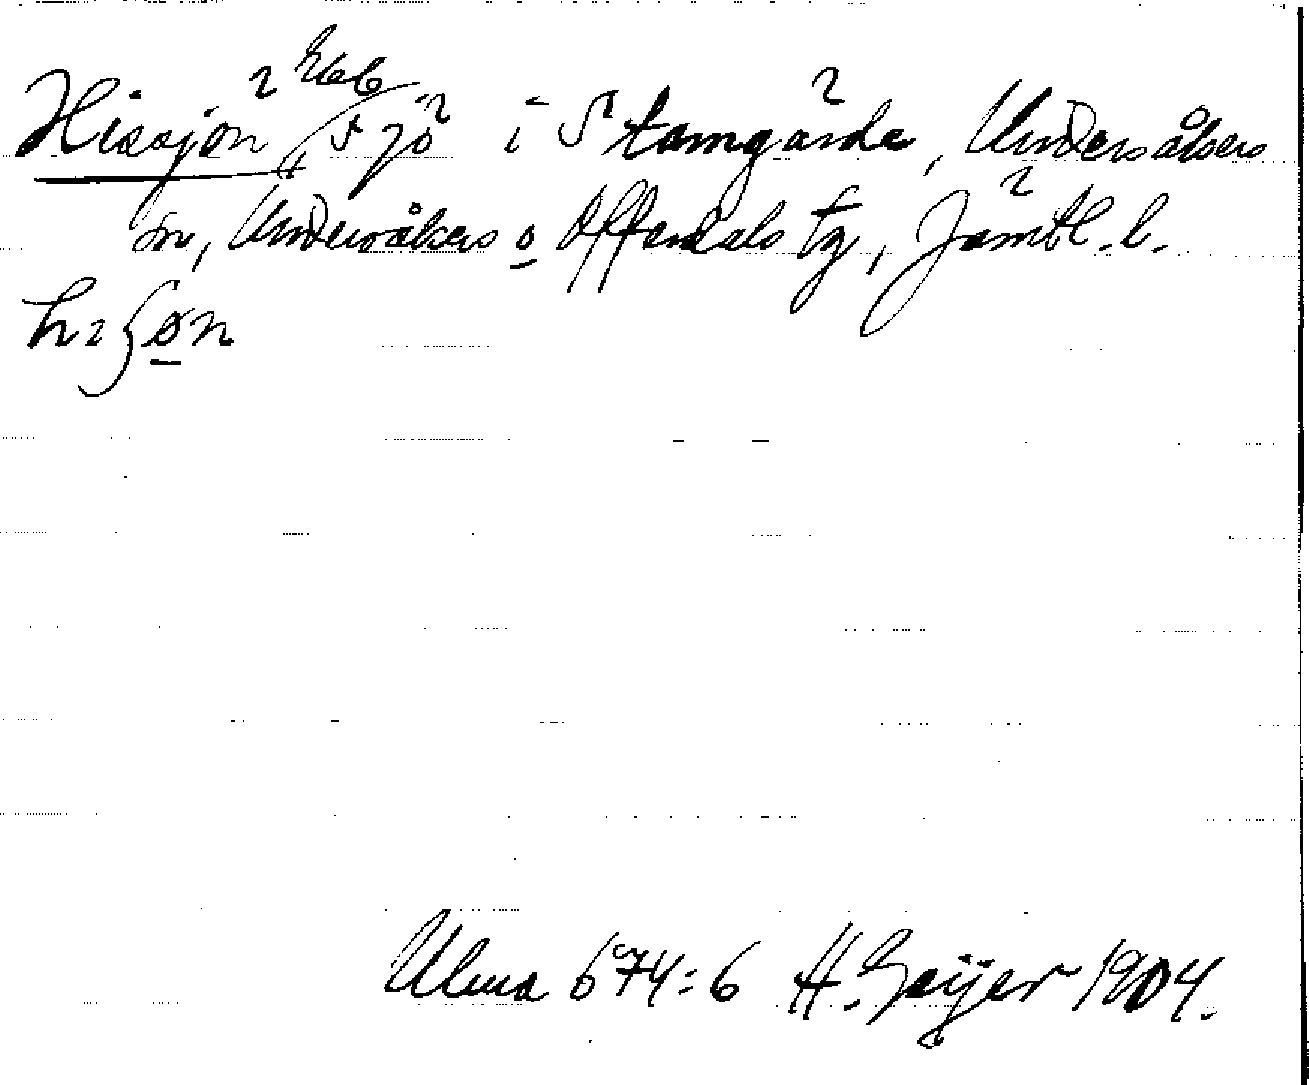 Hissjön, sjö i Stamgärde, Undersåkers
sn, Undersåkers o Offerdals tg, Jämtl. l.
Ulma 674:6 H. Geijer 1904.